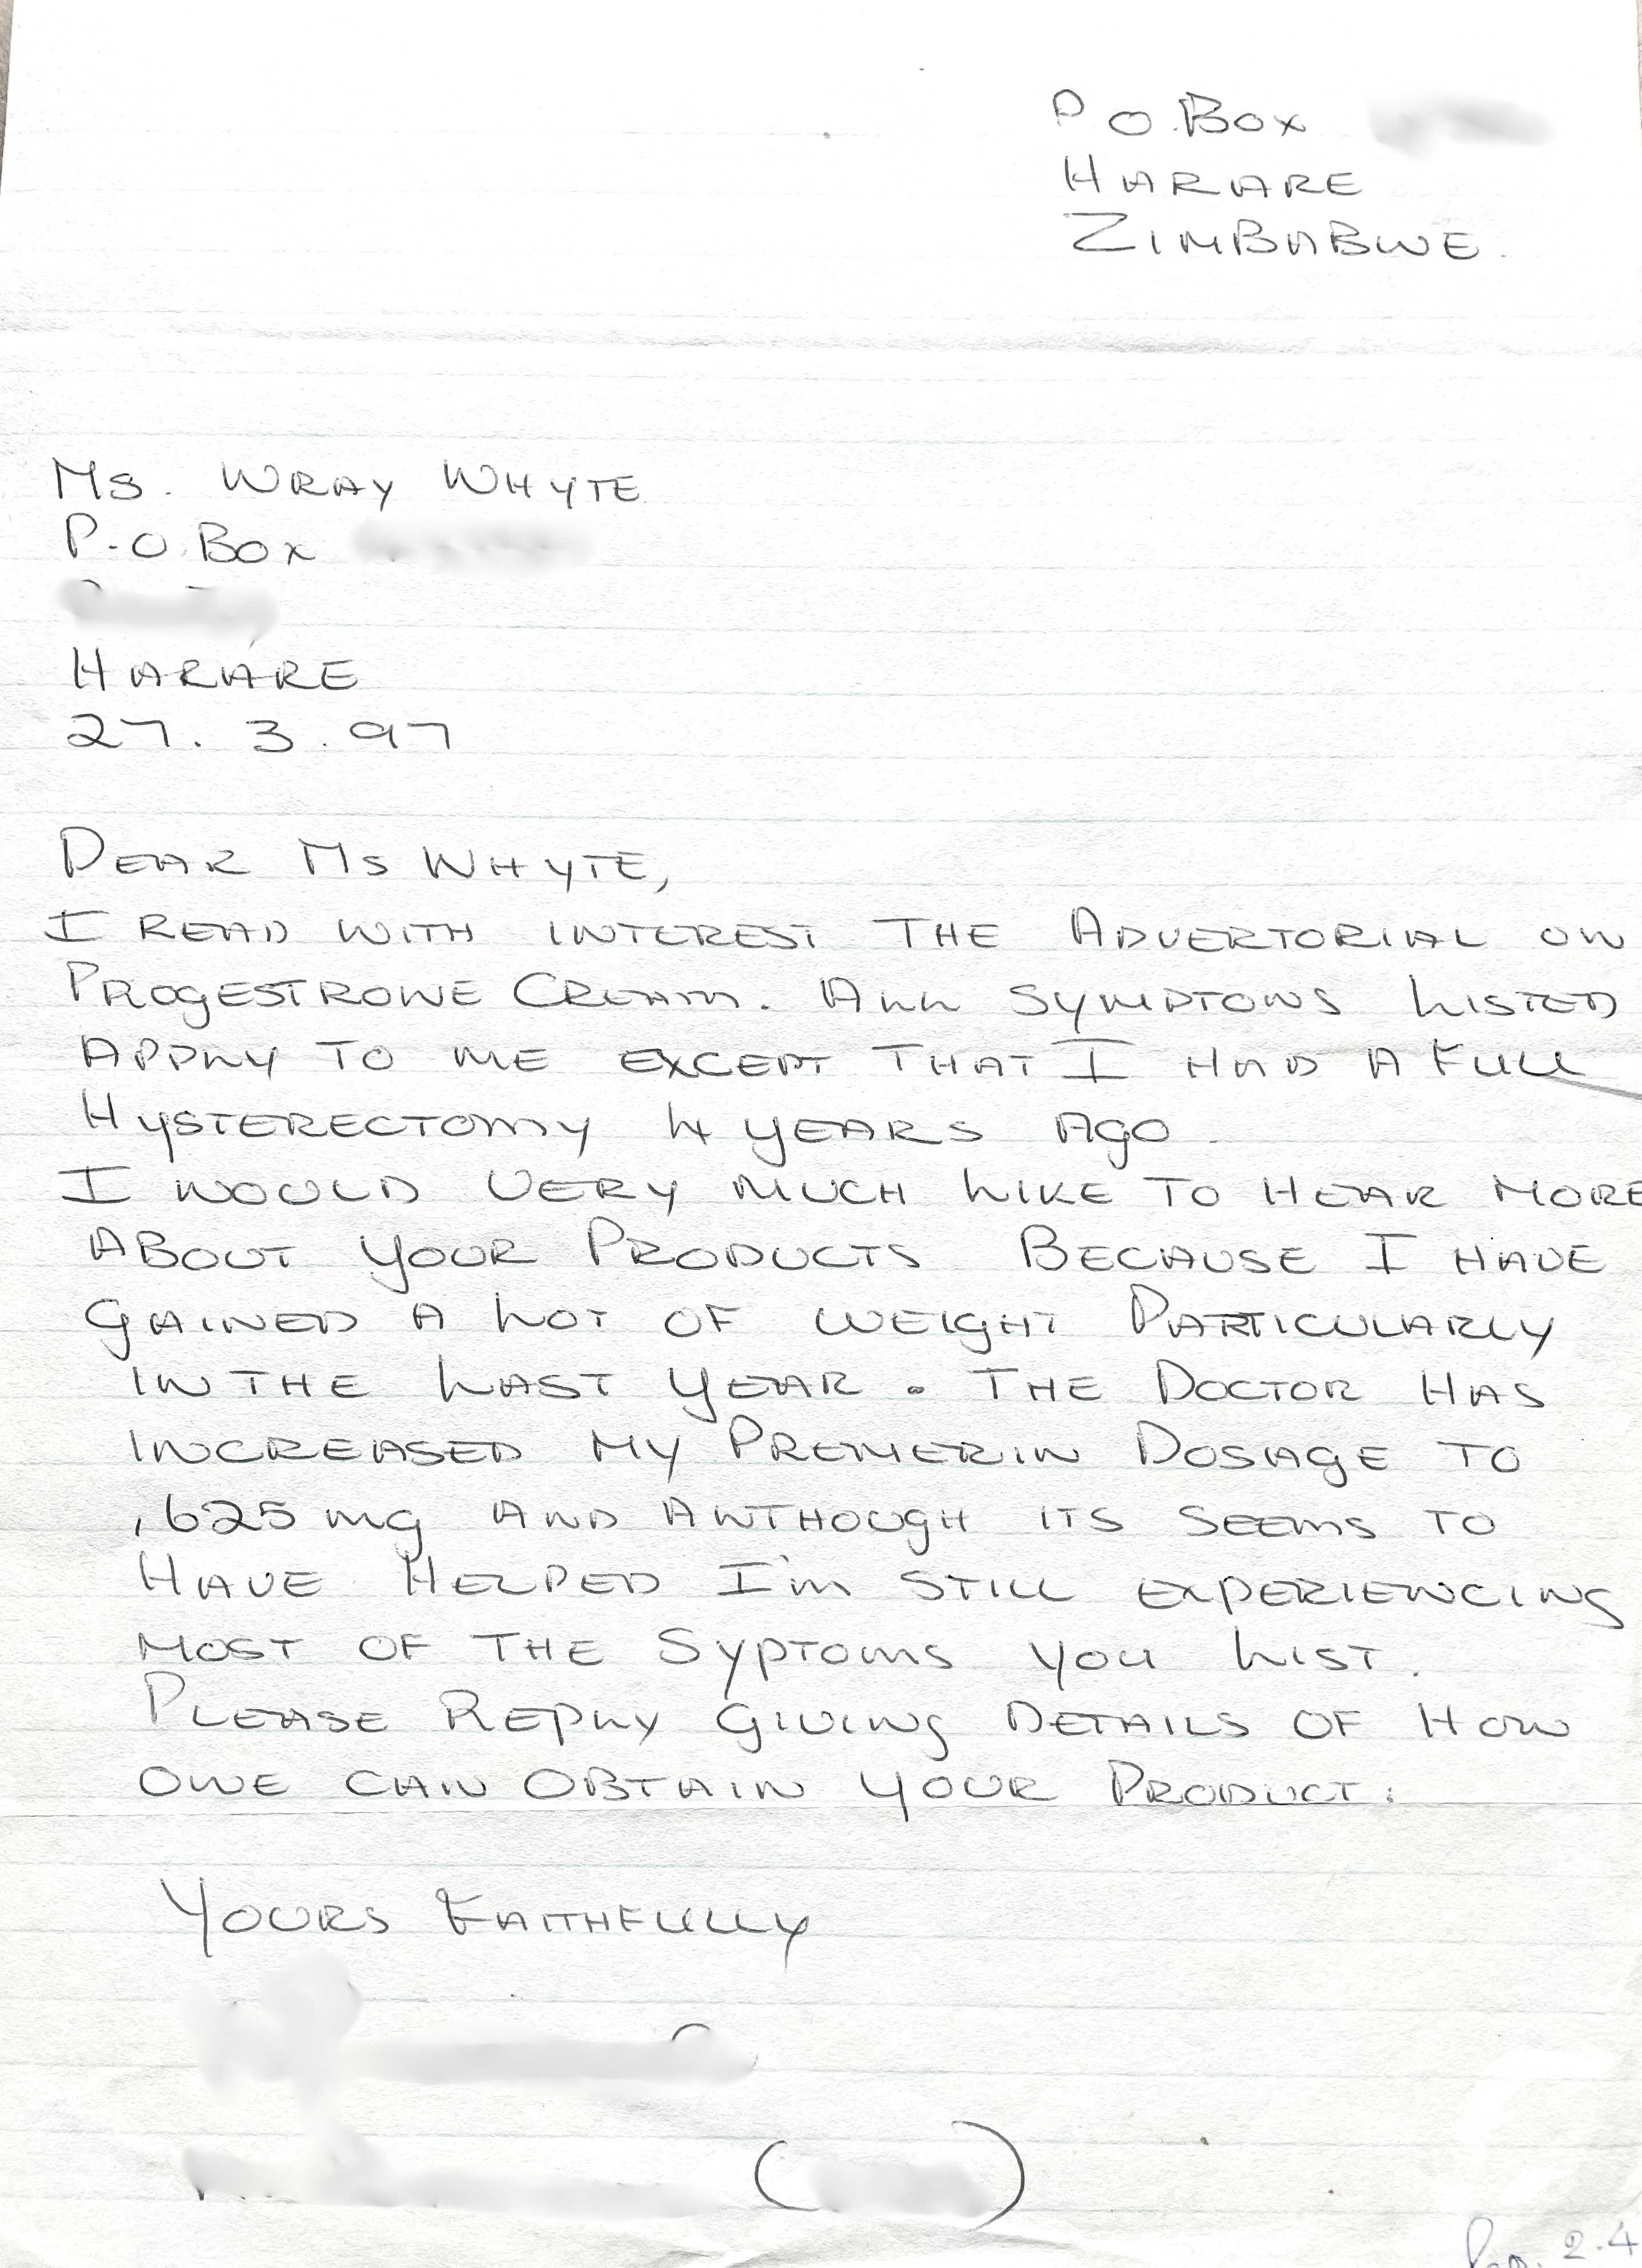 P O. BOX
HARARE
ZIMBABWE.
MS. WRAY WHYTE
P.O. BOX
HARARE
27. 3. 97
DEAR MS WHYTE,
I READ WITH INTEREST THE ADVERTORIAL ON
PROGESTRONE CREAM. ALL SYMPTONS LISTED
APPLY TO ME EXCEPT THAT I HAD A FULL
HYSTERECTOMY 4 YEARS AGO.
I WOULD VERY MUCH LIKE TO HEAR MORE
ABOUT YOUR PRODUCTS BECAUSE I HAVE
GAINED A LOT OF WEIGHT PARTICULARLY
IN THE LAST YEAR. THE DOCTOR HAS
INCREASED MY PREMERIN DOSAGE TO
,625 mg AND ALTHOUGH ITS SEEMS TO
HAVE HELPED I'M STILL EXPERIENCING
MOST OF THE SYPTOMS YOU LIST.
PLEASE REPLY GIVING DETAILS OF HOW
ONE CAN OBTAIN YOUR PRODUCT.
YOURS FAITHFULLY
2.4